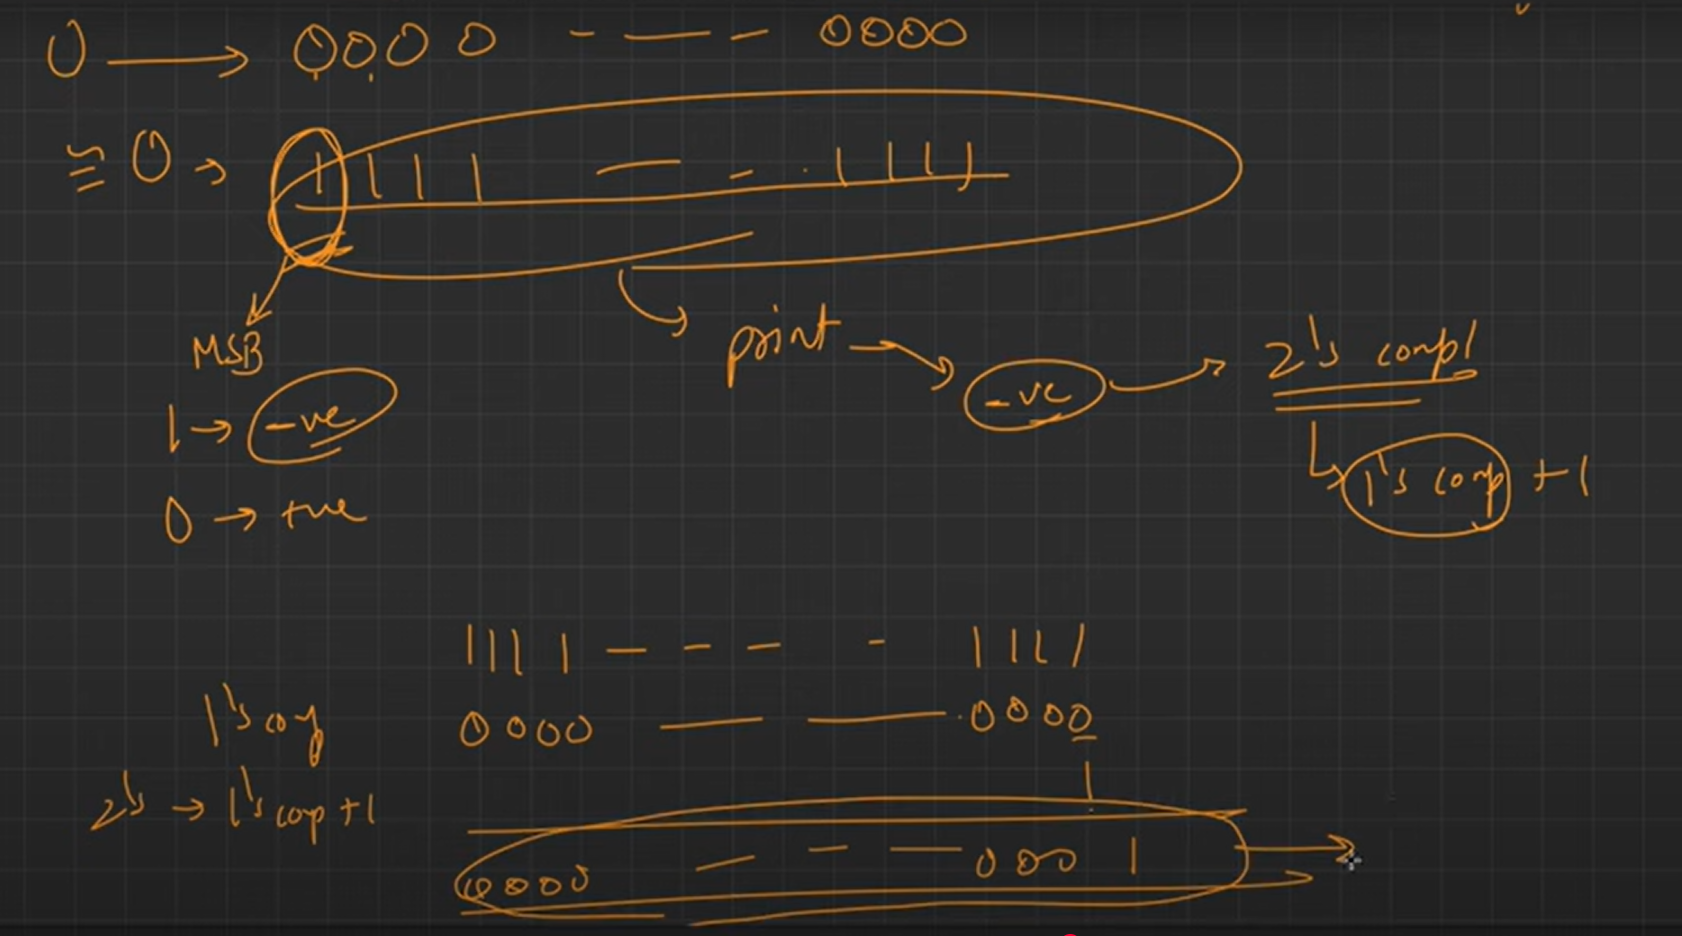 0 → 0000 - — - 0000
≅ 0 → 1111 — - . 1111
MSB
print → -ve → 2's compl
1 → -ve
1's comp + 1
0 → +ve
1111 — - - - 1111
1's coy 0000 — — . 0000
2's → 1's comp + 1
1
0000 — - — 0001 →